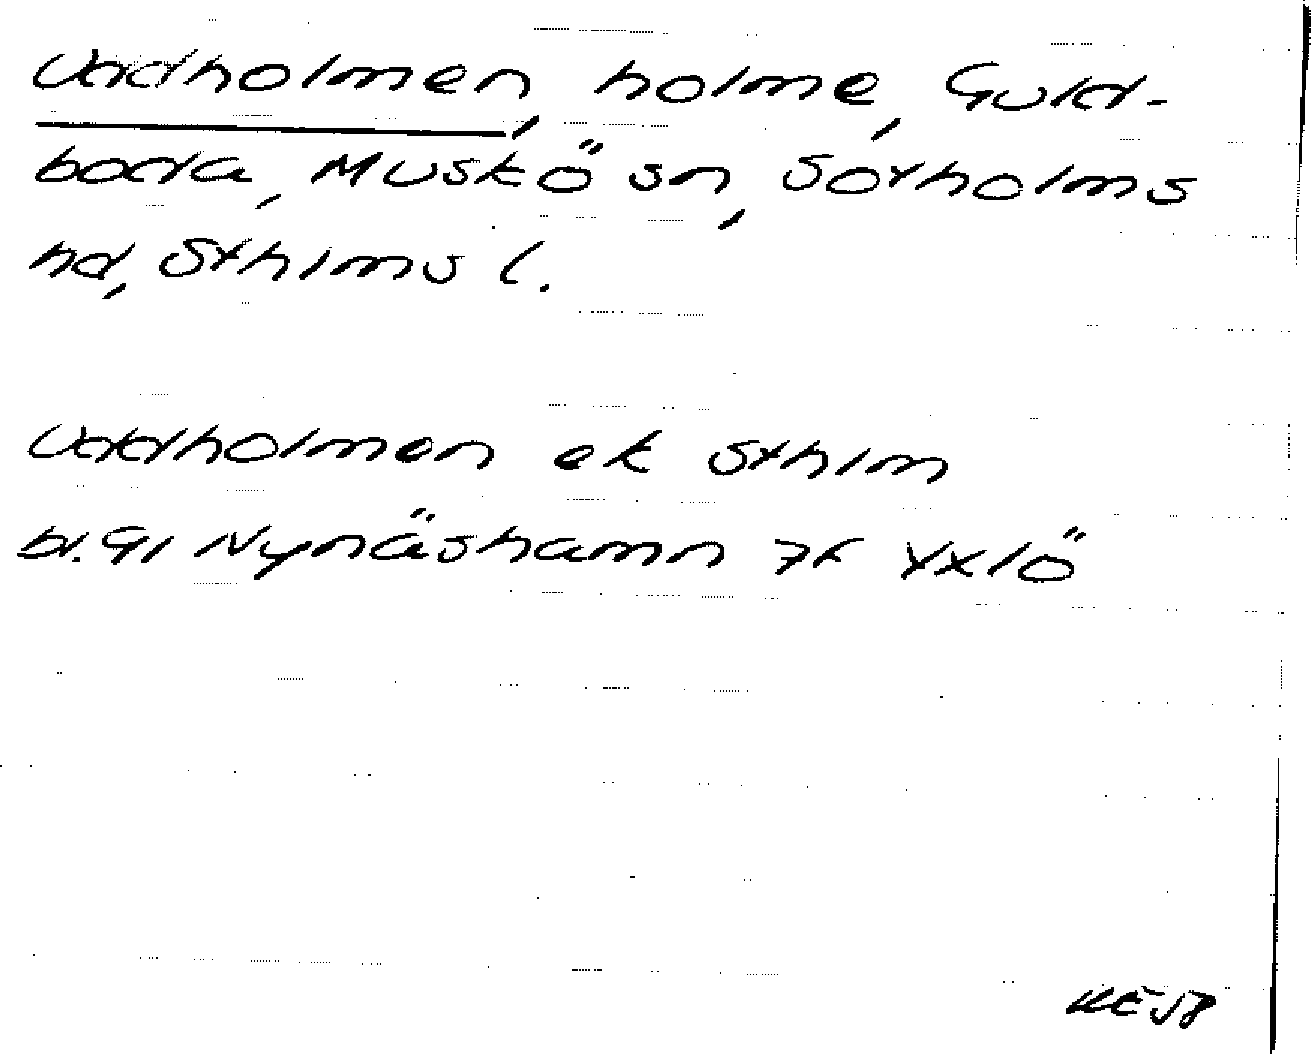 Uddholmen, holme, Guld-
boda, Muskö sn, Sotholms
hd, Sthlms l.
Uddholmen ek Sthlm
bl. 91 Nynäshamn 7f Yxlö